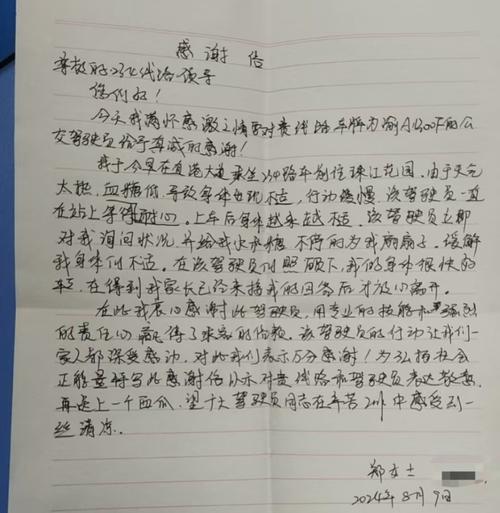 感谢信
尊敬的234线路领导
您们好！
今天我满怀感激之情要对贵线路车牌为渝A1300F的公
交驾驶员给予真诚的感谢！
我于今早在直港大道乘坐234路车前往珠江花园，由于天气
太热，血糖低，导致身体出现不适，行动缓慢，该驾驶员一直
在站上等得耐心。上车后身体越来越不适，该驾驶员立即
对我询问状况，并给我火水糖，不停的为我扇扇子，缓解
我身体的不适。在该驾驶员的照顾下，我的身体很快的
在得到我家长已经来接我的回答后才放心离开。
在此我衷心感谢此驾驶员，用专业的技能和强烈
的责任心赢得了乘客的信赖。该驾驶员的行动让我们一
家人都深受感动，对此我们表示万分感谢！为弘扬社会
正能量特写此感谢信以示对贵线路和驾驶员表达敬意，
再送上一个西瓜，望广大驾驶员同志在辛苦工作中感受到一
丝清凉。
郑女士
2024年8月9日